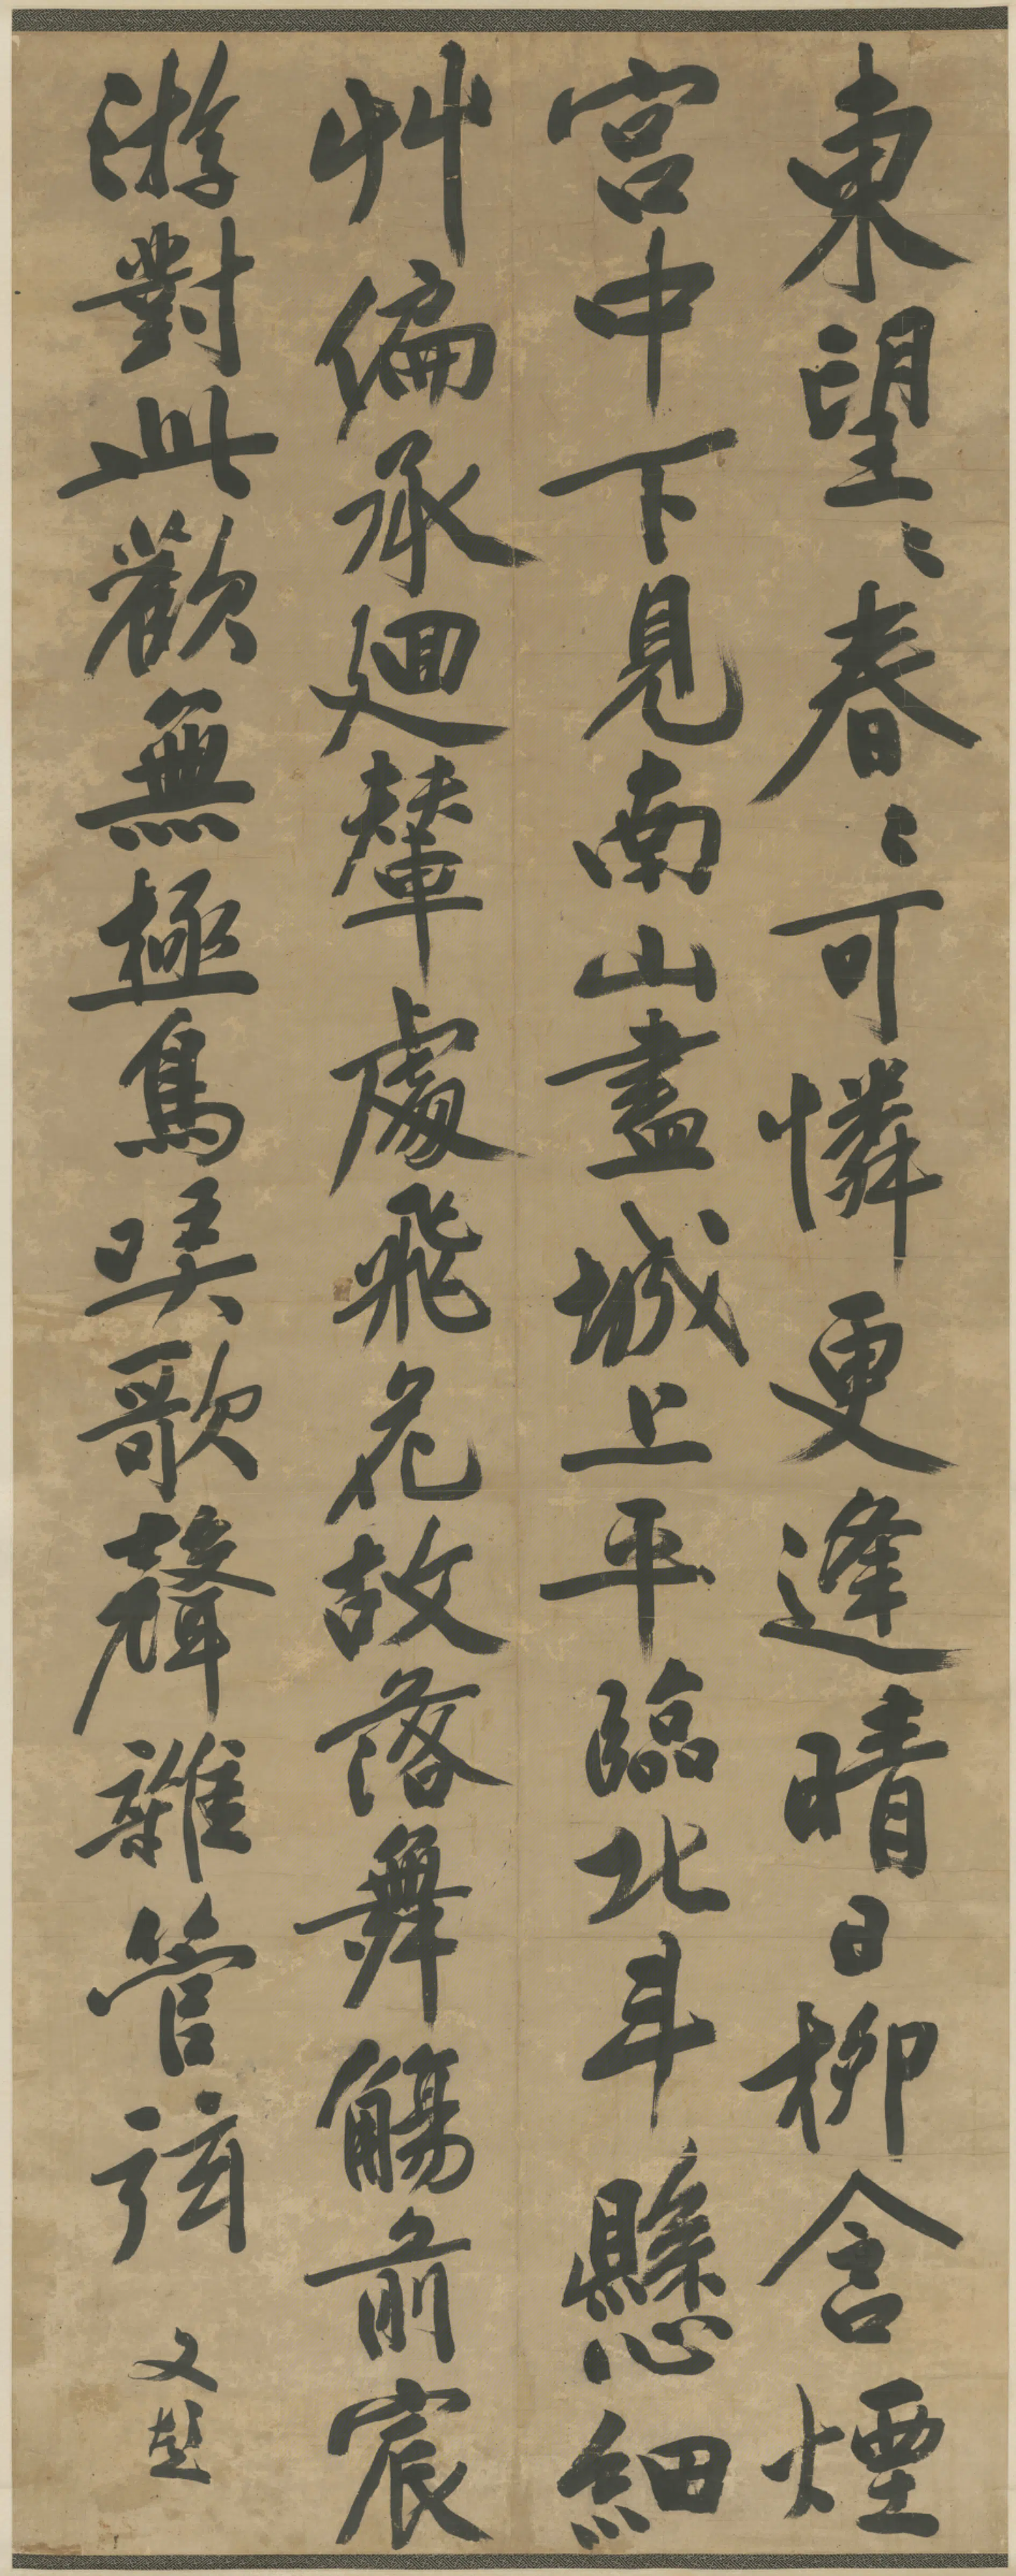 東望〻春〻可憐更逢晴日柳含煙
宮中下見南山盡城上平臨北斗懸細
艸偏承廻輦處飛花故落舞觴前宸
游對此歡無極鳥哢歌聲雜管弦
又題